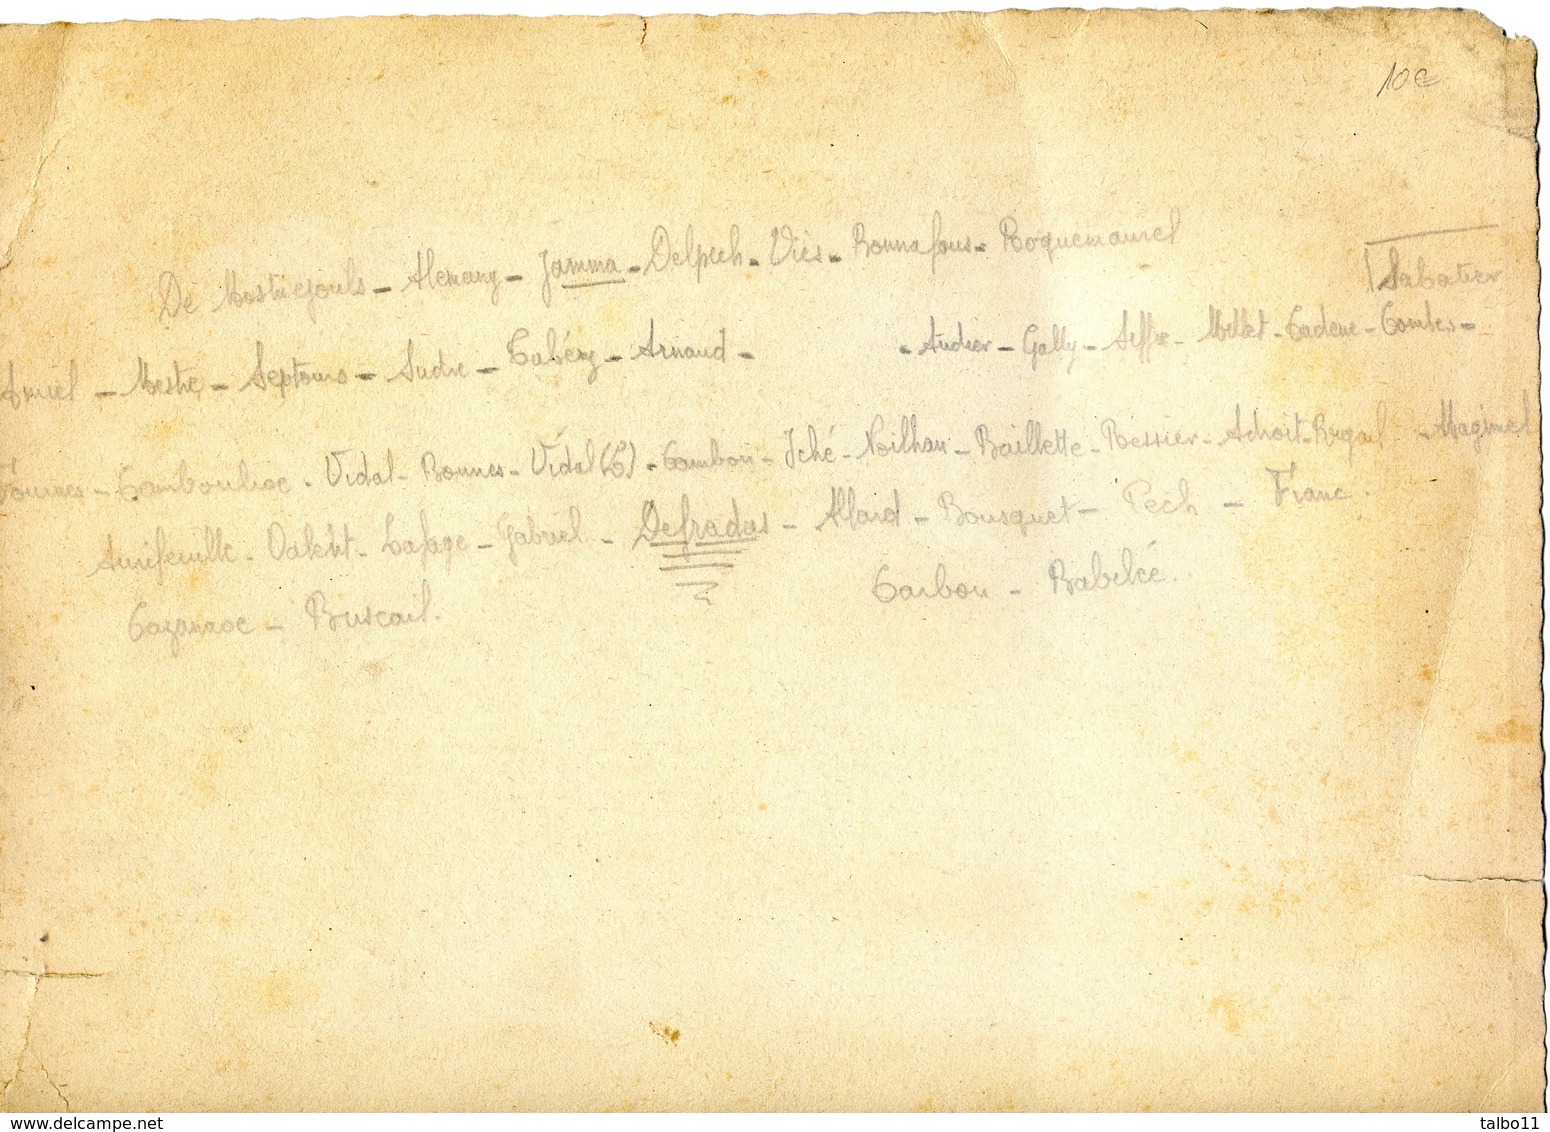 10€
De Mostuejouls - Alemany - Jamma - Delpech - Viès - Bonnafous - Roquemaurel
Sabatier
Amiel - Mestre - Septours - Sudre - Cabéry - Arnaud - - Audier - Gally - Seffre - Millet - Cadene - Combes -
Fournes - Camboulive - Vidal - Bonnes - Vidal (C) - Cambon - Iché - Noilhan - Baillette - Ressier - Adroit - Rigal - Maginel
Aurifeuille - Lafage - Gabriel - Defradas - Allard - Bousquet - Pech - Franc.
Cazanave - Buscail. Carbou - Babelcé.
www.delcampe.net
talbo11